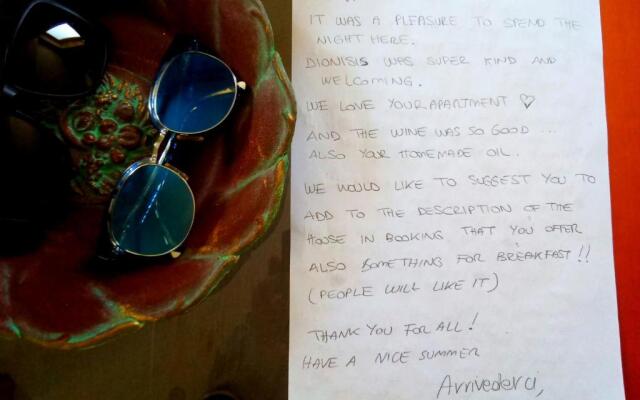 IT WAS A PLEASURE TO SPEND THE
NIGHT HERE.
DIONISIS WAS SUPER KIND AND
WELCOMING.
WE LOVE YOUR APARTMENT ♡
AND THE WINE WAS SO GOOD ...
ALSO YOUR HOMEMADE OIL.
WE WOULD LIKE TO SUGGEST YOU TO
ADD TO THE DESCRIPTION OF THE
HOUSE IN BOOKING THAT YOU OFFER
ALSO SOMETHING FOR BREAKFAST!!
(PEOPLE WILL LIKE IT)
THANK YOU FOR ALL!
HAVE A NICE SUMMER
Arrivederci,